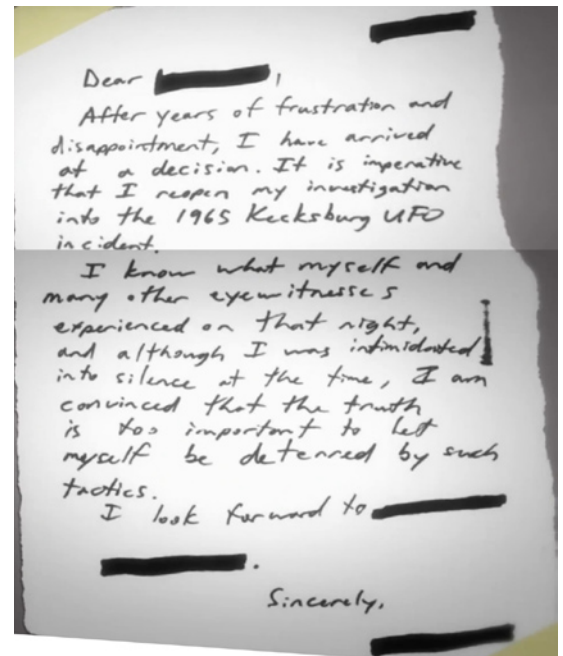 Dear ,
After years of frustration and
disappointment, I have arrived
at a decision. It is imperative
that I reopen my investigation
into the 1965 Kecksburg UFO
incident.
I know what myself and
many other eyewitnesses
experienced on that night,
and although I was intimidated
into silence at the time, I am
convinced that the truth
is too important to let
myself be deterred by such
tactics.
I look forward to
.
Sincerely,